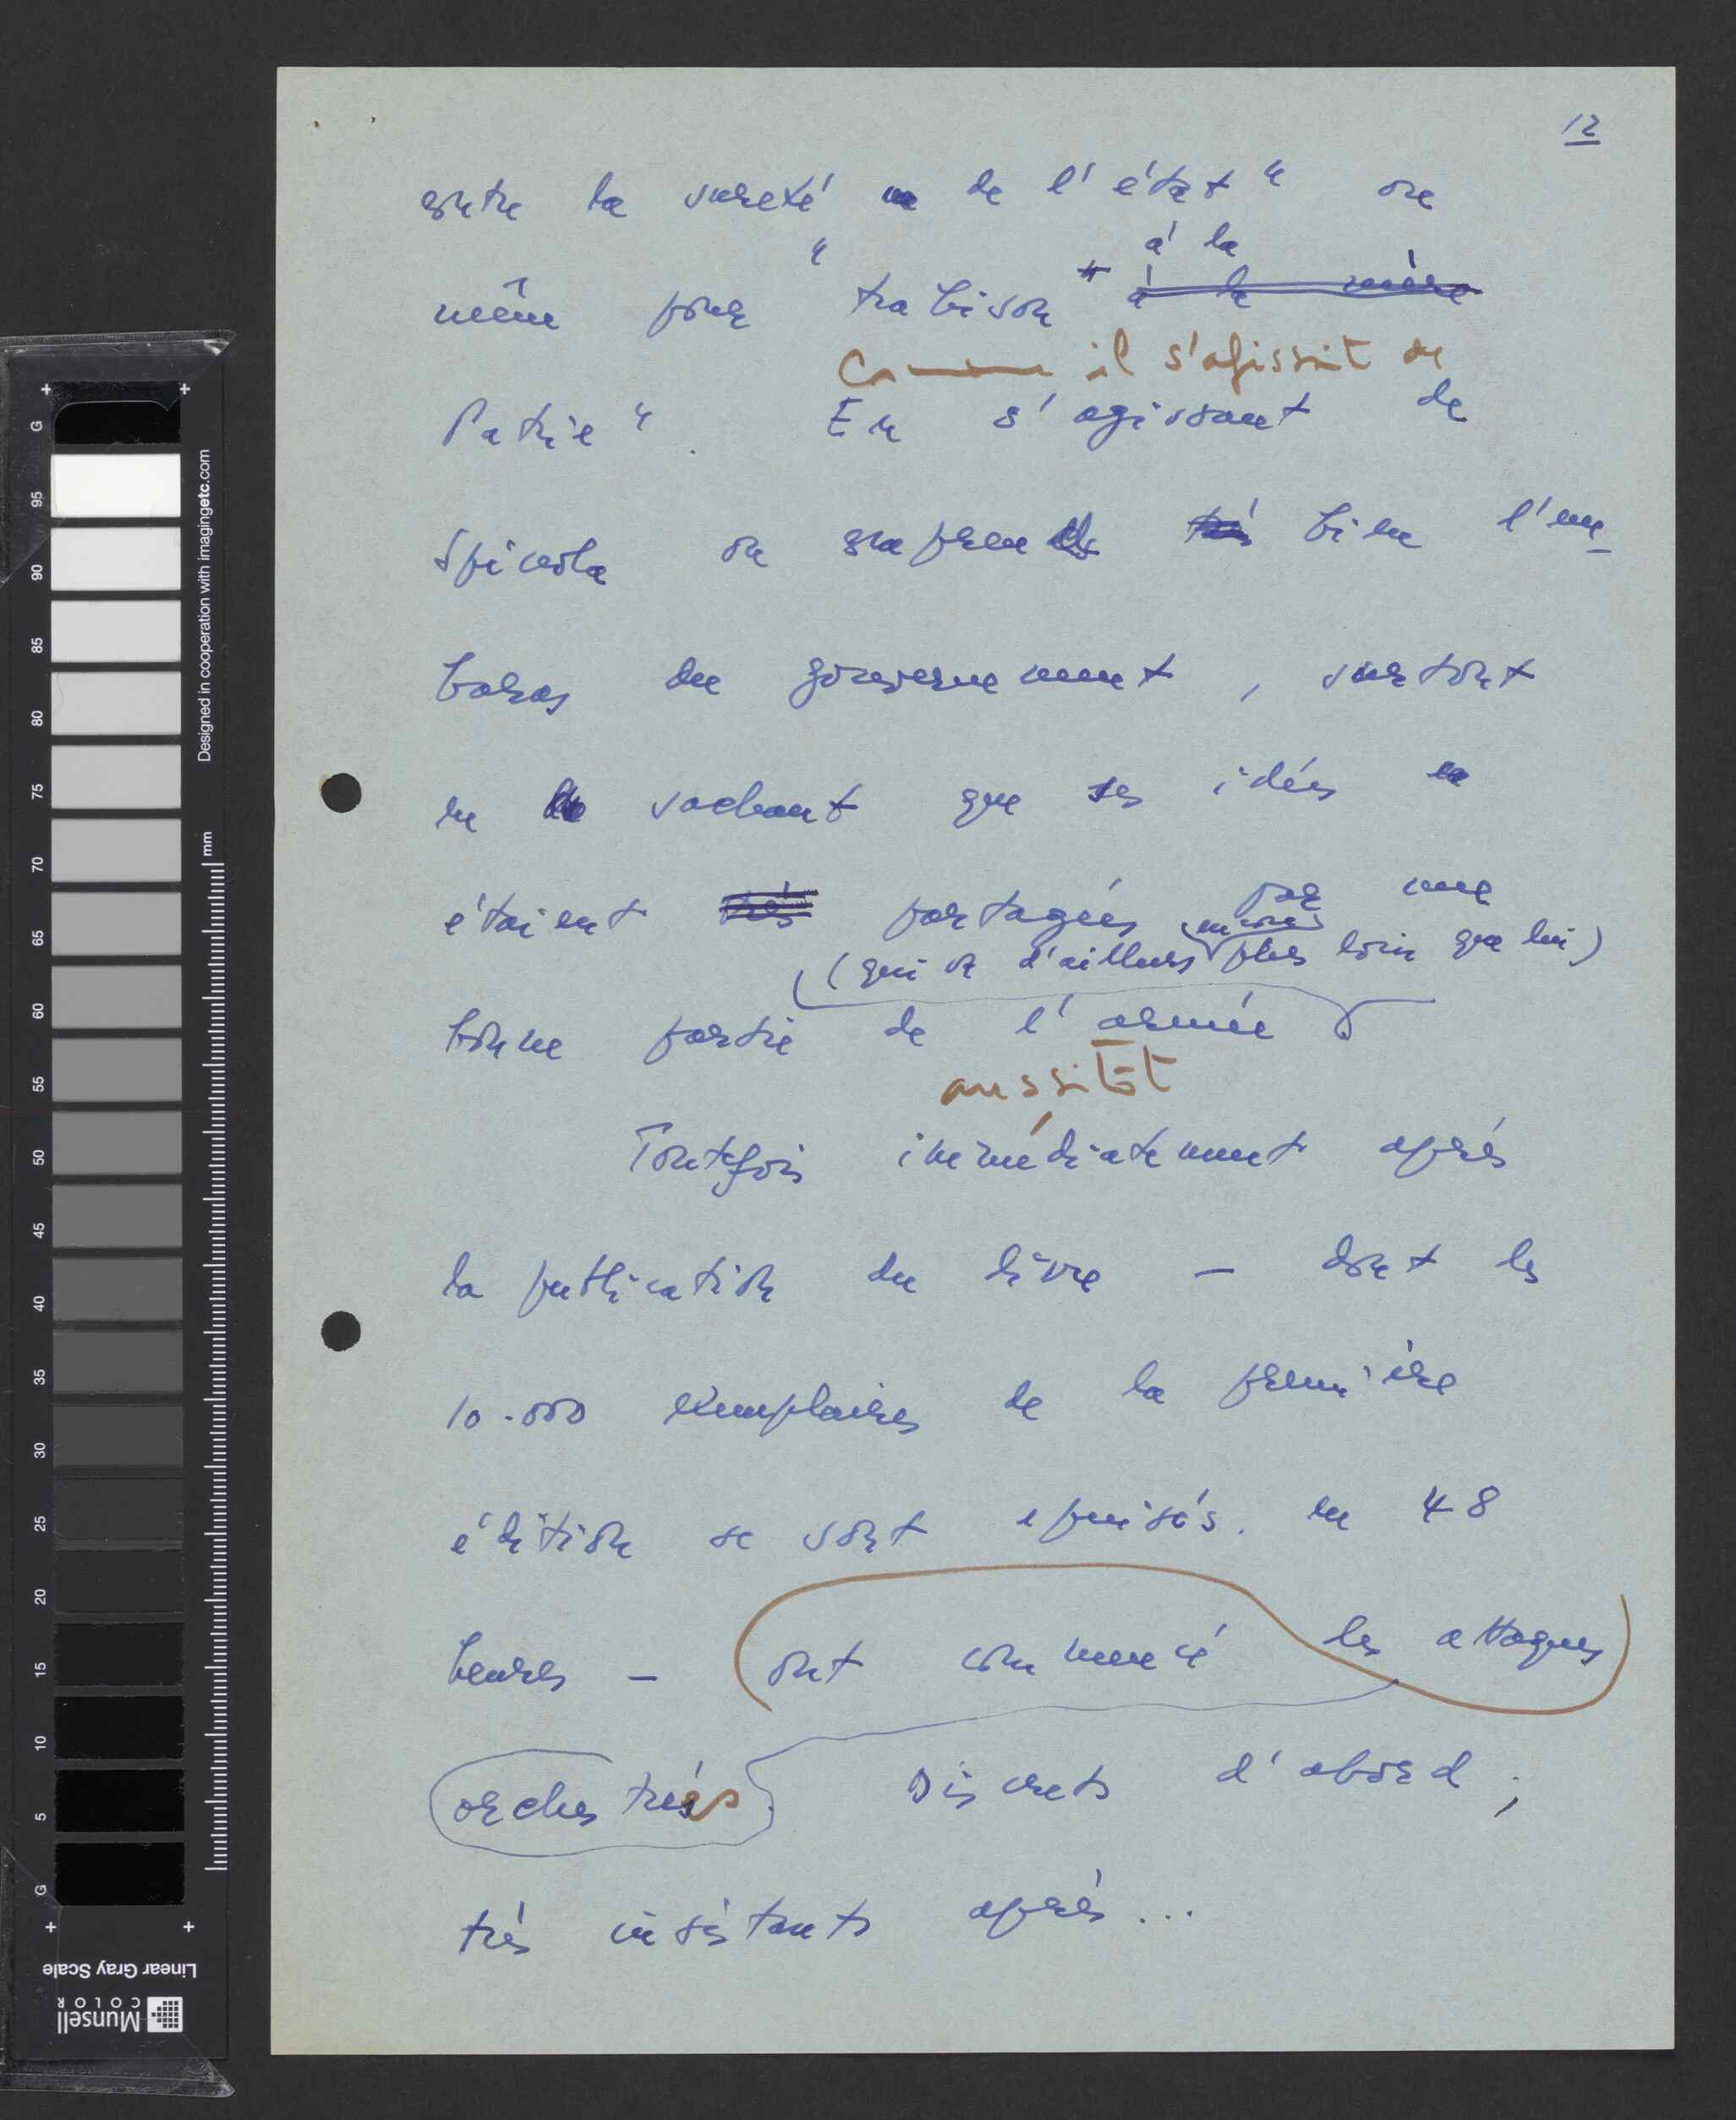 12
contre la sureté de l'état" ou
à la
même pour "trahison" à la mère
Comme il s'agissait de
Patrie". En s'agissant de
Spinola on comprend très bien l'em-
baras du gouvernement, surtout
en sachant que ses idées
étaient très partagées par une
encore
(qui va d'ailleurs plus loin que lui)
bonne partie de l'armée
aussitôt
Toutefois immédiatement après
la publication du livre — dont les
10.000 exemplaires de la première
édition se sont epuisés. en 48
heures — ont commencé les attaques
orchestrées discrets d'abord;
très insistants après...
Designed in cooperation with imagingetc.com
mm
G 95 90 85 80 75 70 65 60 55 50 45 40 35 30 25 20 15 10 5 G
Linear Gray Scale
Munsell
COLOR